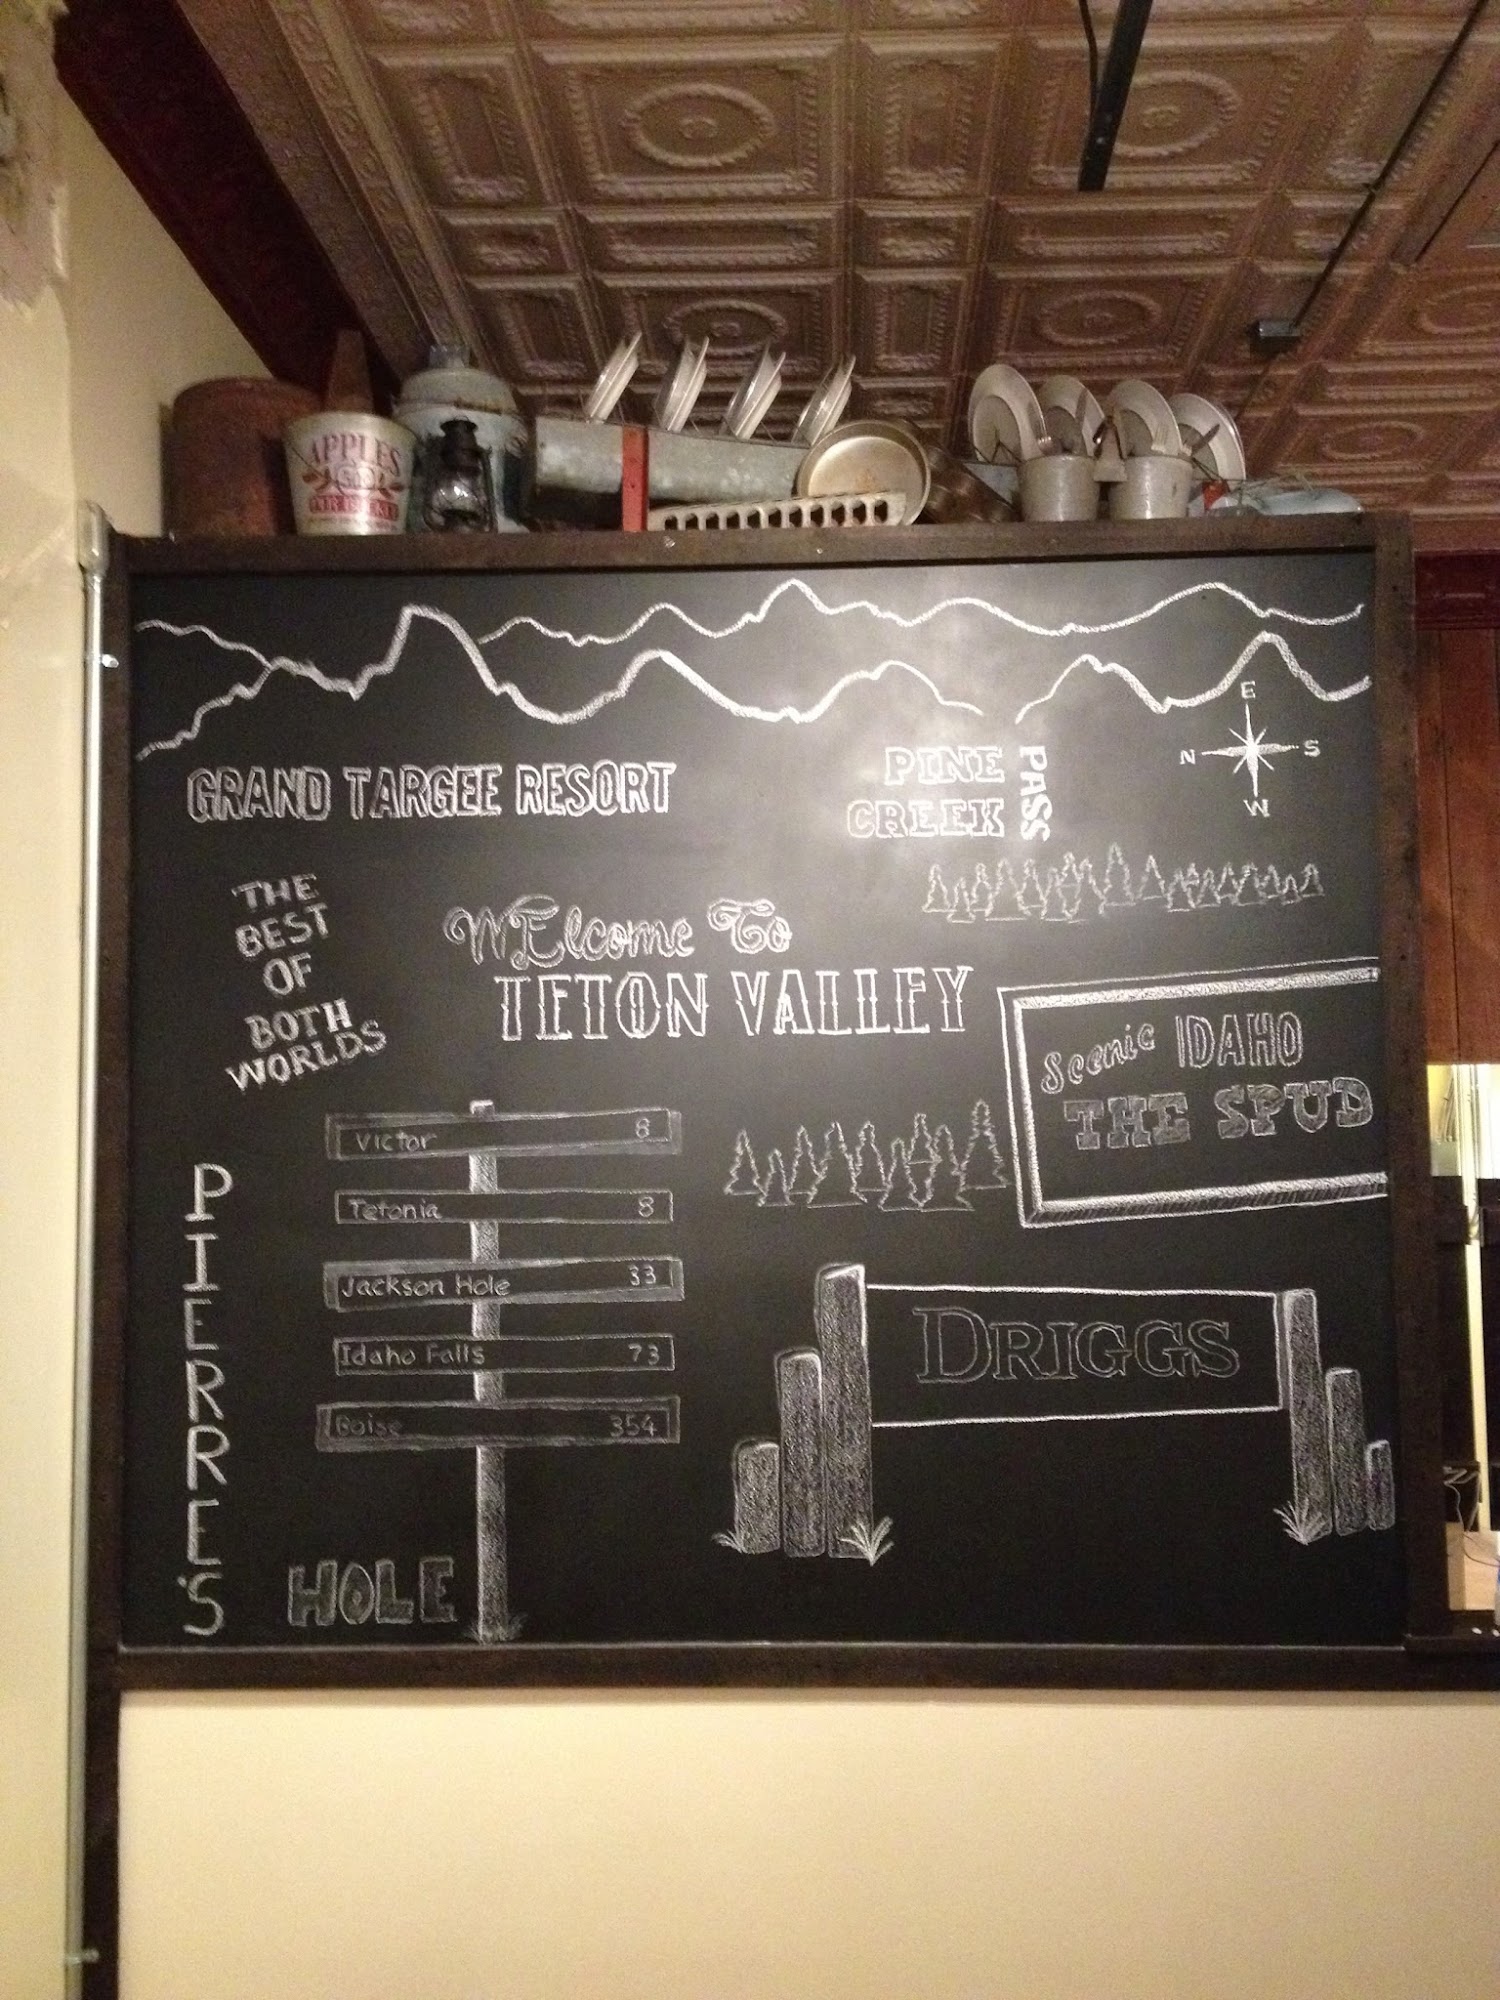 APPLES
GRAND TARGEE RESORT
PINE
CREEK
PASS
E
N S
W
THE
BEST
OF
BOTH
WORLDS
WElcome To
TETON VALLEY
Scenic IDAHO
THE SPUD
Victor 8
Tetonia 8
Jackson Hole 33
Idaho Falls 73
Boise 354
PIERRE'S
HOLE
DRIGGS